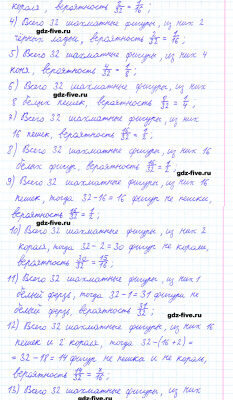 короля, вероятность 2/32 = 1/16 ;
4) Всего 32 шахматные фигуры, из них 2
черных ладьи, вероятность 2/32 = 1/16 ;
5) Всего 32 шахматные фигуры, из них 4
коня, вероятность 4/32 = 1/8 ;
6) Всего 32 шахматные фигуры, из них
8 белых пешек, вероятность 8/32 = 1/4 ;
7) Всего 32 шахматные фигуры, из них
16 пешек, вероятность 16/32 = 1/2 ;
8) Всего 32 шахматные фигуры, из них 16
белых фигур, вероятность 16/32 = 1/2 ;
9) Всего 32 шахматные фигуры, из них 16
пешек, тогда 32-16=16 фигур не пешки,
вероятность 16/32 = 1/2 ;
10) Всего 32 шахматные фигуры, из них 2
короля, тогда 32-2=30 фигур не короли,
вероятность 30/32 = 15/16 ;
11) Всего 32 шахматные фигуры, из них 1
белый ферзь, тогда 32-1=31 фигура не
белый ферзь, вероятность 31/32 ;
12) Всего 32 шахматные фигуры, из них 16
пешек и 2 короля, тогда 32-(16+2)=
=32-18=14 фигур не пешка и не король,
вероятность 14/32 = 7/16 ;
13) Всего 32 шахматные фигуры, из них